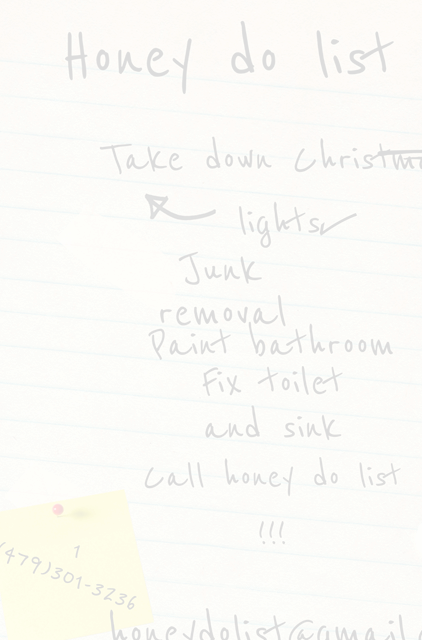 Honey do list
Take down Christm
lights✓
Junk
removal
Paint bathroom
Fix toilet
and sink
Call honey do list
!!!
1
(479)301-3236
honeydolist@gmail.